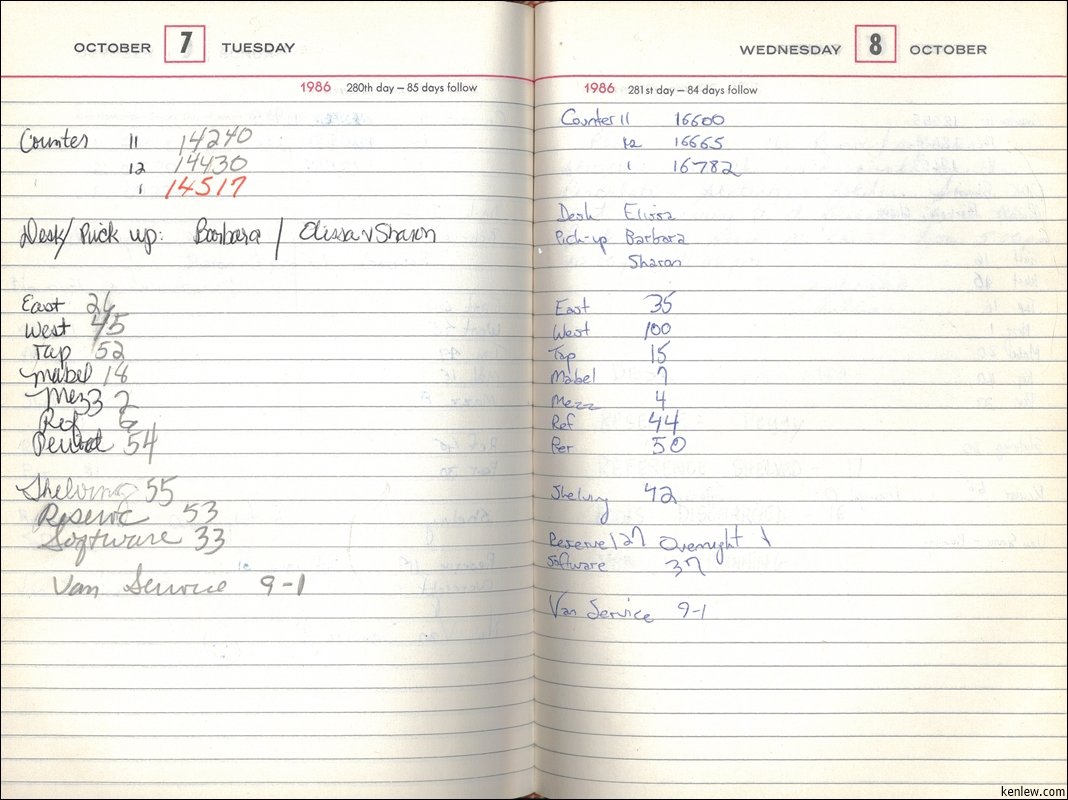 OCTOBER 7 TUESDAY
1986 280th day — 85 days follow
Counter 11 14240
12 14430
1 14517
Desk/ Pick up: Barbara / Elissa + Sharon
East 26
West 45
Tap 52
Mabel 18
Mezz 2
Ref 6
Period 54
Shelving 55
Reserve 53
Software 33
Van Service 9-1
WEDNESDAY 8 OCTOBER
1986 281st day — 84 days follow
Counter 11 16600
12 16665
1 16782
Desk Elissa
Pick-up Barbara
Sharon
East 35
West 100
Tap 15
Mabel 7
Mezz 4
Ref 44
Per 50
Shelving 42
Reserve 127 Overnight 1
Software 37
Van Service 9-1
kenlew.com